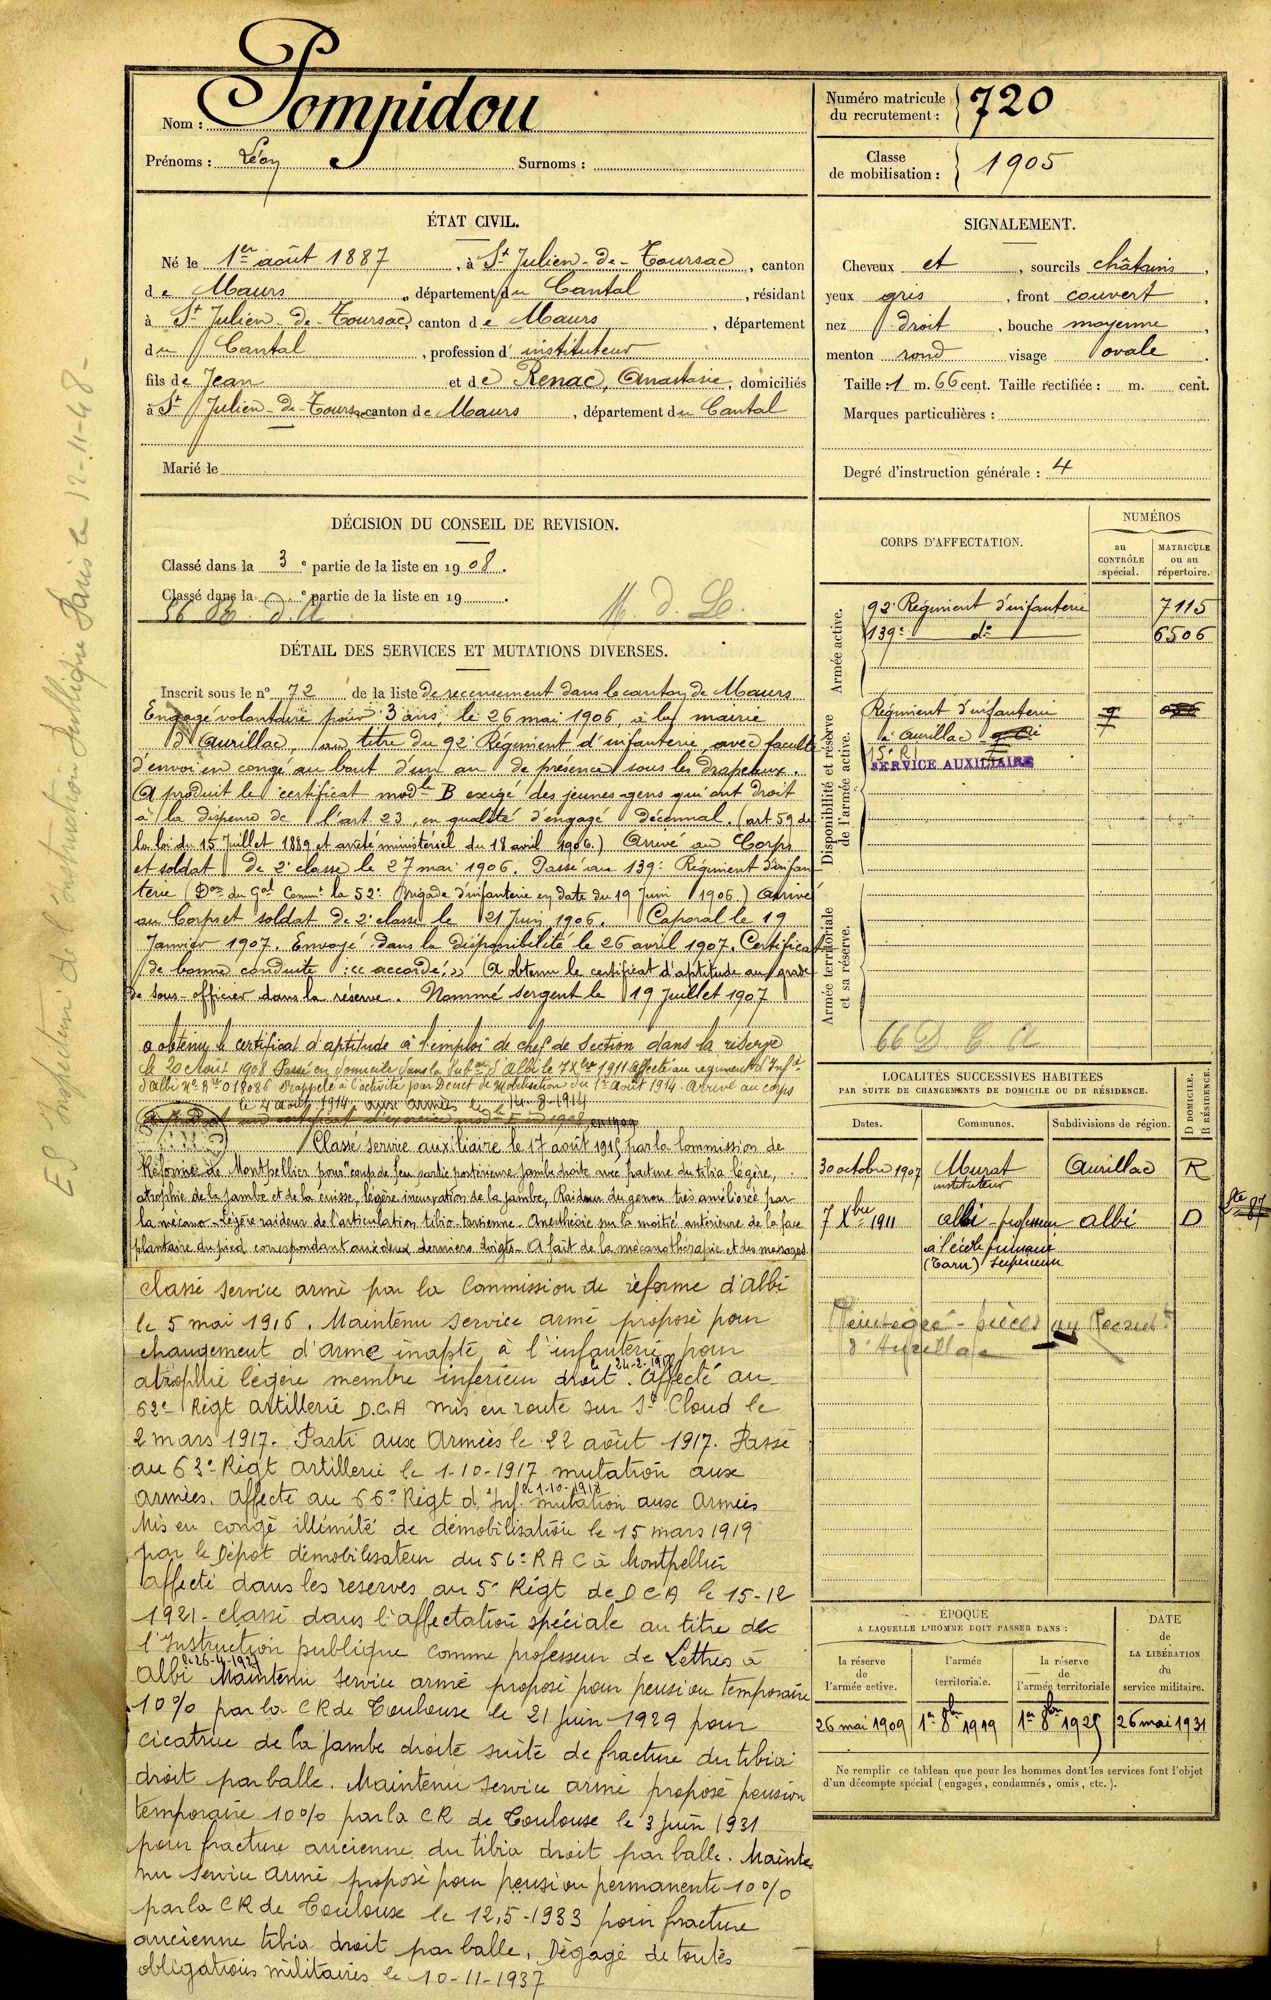 Nom : Pompidou
Prénoms : Léon Surnoms :
Numéro matricule du recrutement : 720
Classe de mobilisation : 1905
ÉTAT CIVIL.
Né le 1er août 1887, à St Julien-de-Toursac, canton
de Maurs, département du Cantal, résidant
à St Julien-de-Toursac, canton de Maurs, département
du Cantal, profession d'instituteur
fils de Jean et de Renac, Anastasie, domiciliés
à St Julien-de-Toursac canton de Maurs, département du Cantal
Marié le
SIGNALEMENT.
Cheveux et, sourcils châtains,
yeux gris, front couvert,
nez droit, bouche moyenne,
menton rond visage ovale.
Taille : 1 m. 66 cent. Taille rectifiée : m. cent.
Marques particulières :
Degré d'instruction générale : 4
DÉCISION DU CONSEIL DE REVISION.
Classé dans la 3e partie de la liste en 1908.
Classé dans la e partie de la liste en 19 .
M. d. L.
DÉTAIL DES SERVICES ET MUTATIONS DIVERSES.
Inscrit sous le n° 72 de la liste de recensement dans le canton de Maurs
Engagé volontaire pour 3 ans, le 26 mai 1906, à la mairie
d'Aurillac, au titre du 92e Régiment d'infanterie, avec faculté
d'envoi en congé au bout d'un an de présence sous les drapeaux.
A produit le certificat modle B exigé des jeunes gens qui ont droit
à la dispense de l'art. 23, en qualité d'engagé décennal. (art 59 de
la loi du 15 Juillet 1889 et arrêté ministériel du 18 avril 1906.) Arrivé au Corps
et soldat de 2e classe le 27 mai 1906. Passé au 139e Régiment d'infan-
terie (Don du Gal Commt la 52e Brigade d'infanterie en date du 19 Juin 1906.) Arrivé
au Corps et soldat de 2e classe le 21 Juin 1906. Caporal le 19
Janvier 1907. Envoyé dans la disponibilité le 26 avril 1907. Certificat
de bonne conduite : « accordé. » A obtenu le certificat d'aptitude au grade
de sous-officier dans la réserve. Nommé sergent le 19 Juillet 1907
A obtenu le certificat d'aptitude à l'emploi de chef de section dans la réserve
le 20 Août 1908 Passé en domicile dans la Subon d'Albi le 7 Xbre 1911 affecté au régiment d'Infie
d'Albi Rappelé à l'activité par Décret de Mobilisation du 1er Août 1914. Arrivé au corps
le 4 août 1914. aux armées le 14-8-1914
Classé service auxiliaire le 17 août 1915 par la Commission de
Réforme de Montpellier pour "coup de feu partie postérieure jambe droite avec fracture du tibia légère,
atrophie de la jambe et de la cuisse, légère incurvation de la jambe, Raideur du genou très améliorée par
la mécano-légère raideur de l'articulation tibio-tarsienne - Anesthésie sur la moitié antérieure de la face
plantaire du pied correspondant aux deux derniers doigts - A fait de la mécanothérapie et des massages
classé service armé par la Commission de réforme d'Albi
le 5 mai 1916. Maintenu service armé proposé pour
changement d'arme inapte à l'infanterie pour
atrophie légère membre inférieur droit. Affecté au
62e Régt artillerie D.C.A mis en route sur St Cloud le
2 mars 1917. Parti aux Armées le 22 août 1917. Passé
au 63e Régt artillerie le 1-10-1917 mutation aux
armées. affecté au 66e Régt d'Inf. le 1-10-1918 mutation aux Armées
Mis en congé illimité de démobilisation le 15 mars 1919
par le Dépôt démobilisateur du 56e R A C à Montpellier
affecté dans les réserves au 5e Régt de D C A le 15-12
1921 - classé dans l'affectation spéciale au titre de
l'Instruction publique comme professeur de Lettres à
Albi Maintenu service armé proposé pour pension temporaire
10% par la CR de Toulouse le 21 juin 1929 pour
cicatrice de la jambe droite suite de fracture du tibia
droit par balle. Maintenu service armé proposé pension
temporaire 10% par la CR de Toulouse le 3 juin 1931
pour fracture ancienne du tibia droit par balle. Mainte
nu service armé proposé pour pension permanente 10%
par la CR de Toulouse le 12.5-1933 pour fracture
ancienne tibia droit par balle. Dégagé de toutes
obligations militaires le 10-11-1937
CORPS D'AFFECTATION.
NUMÉROS
au CONTRÔLE spécial.
MATRICULE ou au répertoire.
Armée active.
92e Régiment d'infanterie 7115
139e do 6506
Disponibilité et réserve de l'armée active.
Régiment d'infanterie
d'Aurillac
15e R I
SERVICE AUXILIAIRE
Armée territoriale et sa réserve.
LOCALITÉS SUCCESSIVES HABITÉES
PAR SUITE DE CHANGEMENTS DE DOMICILE OU DE RÉSIDENCE.
D DOMICILE. R RÉSIDENCE.
Dates. Communes. Subdivisions de région.
30 octobre 1907 Murat instituteur Aurillac R
7 Xbre 1911 Albi - professeur Albi D
à l'école primaire
(Tarn) supérieure
Réintégré - pièces au Recrutt
d'Aurillac
ÉPOQUE
A LAQUELLE L'HOMME DOIT PASSER DANS :
la réserve de l'armée active.
l'armée territoriale.
la réserve de l'armée territoriale
DATE de LA LIBÉRATION du service militaire.
26 mai 1909 1er 8bre 1919 1er 8bre 1925 26 mai 1931
Ne remplir ce tableau que pour les hommes dont les services font l'objet
d'un décompte spécial (engagés, condamnés, omis, etc.).
ES Inspecteur de l'instruction publique Paris le 12-11-48-